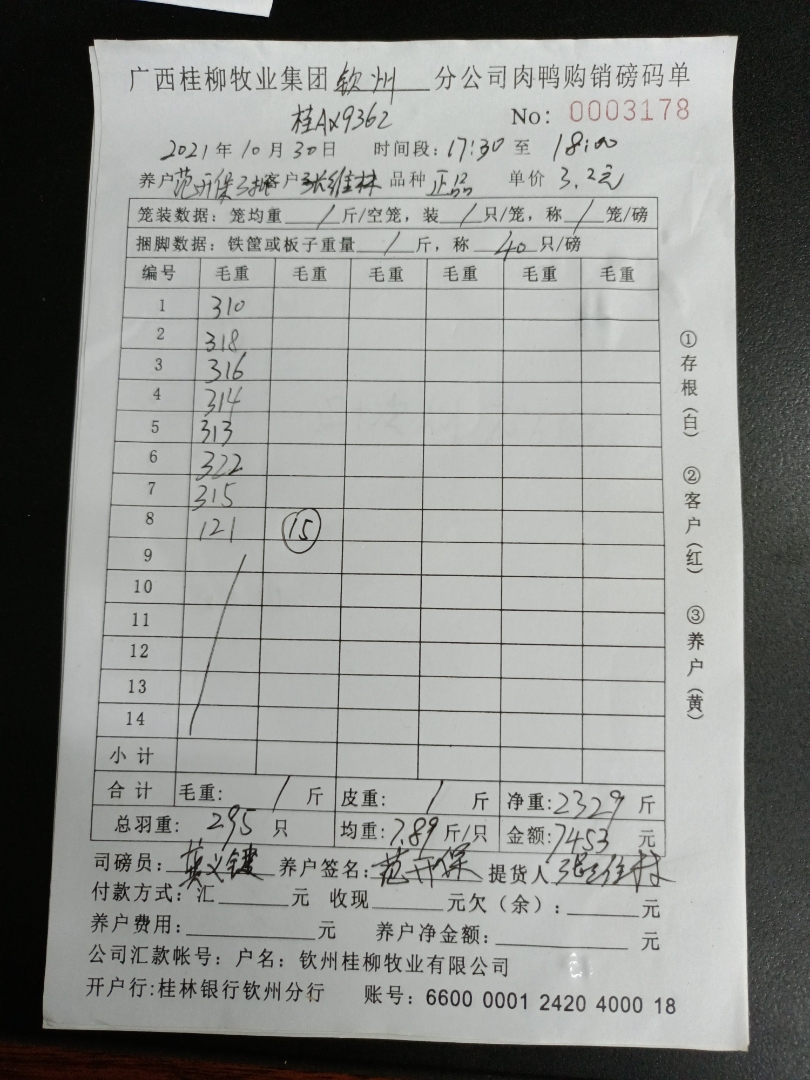 广西桂柳牧业集团 钦州 分公司肉鸭购销磅码单
桂AX9362 No: 0003178
2021年10月30日 时间段: 17:30至 18:00
养户 范开保3批 客户 张维林 品种 正品 单价 3.2元
笼装数据: 笼均重 / 斤/空笼, 装 / 只/笼, 称 / 笼/磅
捆脚数据: 铁筐或板子重量 / 斤, 称 40 只/磅
编号 毛重 毛重 毛重 毛重 毛重 毛重
1 310
2 318
3 316
4 314
5 313
6 322
7 315
8 121 15
9
10
11
12
13
14
小计
合计 毛重: / 斤 皮重: / 斤 净重: 2329 斤
总羽重: 295 只 均重: 7.89 斤/只 金额: 7453 元
司磅员: 养户签名: 范开保 提货人 张维林
付款方式: 汇 元 收现 元欠(余): 元
养户费用: 元 养户净金额: 元
公司汇款帐号: 户名: 钦州桂柳牧业有限公司
开户行:桂林银行钦州分行 账号: 6600 0001 2420 4000 18
①存根(白) ②客户(红) ③养户(黄)